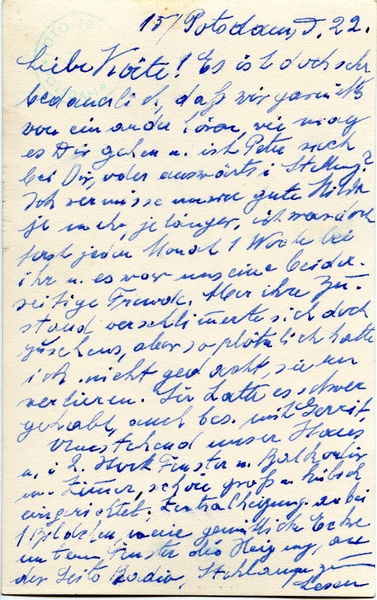 15/ Potsdam, d. 22.
Liebe Käte! Es ist doch sehr
bedauerlich, daß wir gar nichts
von einander hören, wie mag
es Dir gehen u. ist Peter noch
bei Dir, oder auswärts i. Stellung?
Ich vermisse unsere gute
je mehr, je länger, ich war doch
fast jeden Monat 1 Woche bei
ihr u. es war uns eine beider-
seitige Freude. Aber ihr Zu-
stand verschlimerte sich doch
zusehens, aber so plötzlich hatte
ich nicht gedacht, sie zu
verlieren. Sie hatte es schwer
gehabt, auch bes. mit Gerrit
Umstehend unser Haus
u. i. 2. Stock Fenster u. Balkon
m. Zimer, schön groß u. hübsch
eingerichtet, Zentralheizung. anbei
1 Bildchen, meine gemütliche Ecke
unterm Fenster die Heizung, an
der Seite Radio, Stehlampe zum
Lesen